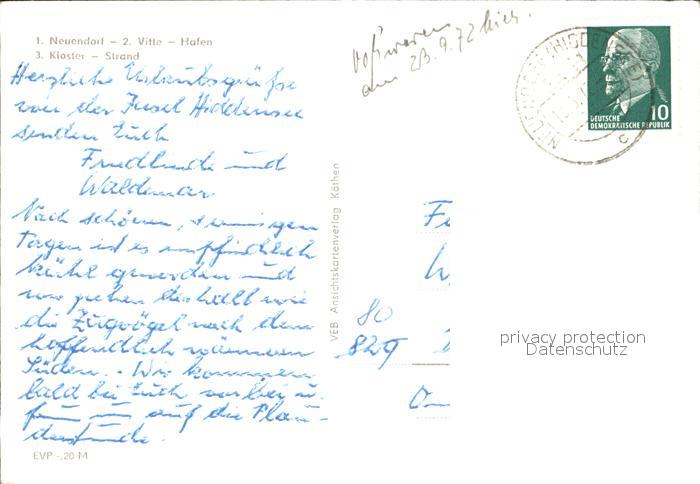 1. Neuendorf – 2. Vitte – Hafen
3. Kloster – Strand
Herzliche Urlaubsgrüße
von der Insel Hiddensee
senden Euch
Friedlinde und
Waldemar
Nach schönen, sonnigen
Tagen ist es empfindlich
kühl geworden und
wir ziehen deshalb wie
die Zugvögel nach dem
hoffendlich wärmeren
Süden. - Wir kommen
bald bei Euch vorbei u.
auf die Plau-
derstunde.
EVP -,20 M
VEB Ansichtskartenverlag Köthen
am 23.9.72 hier.
10
DEUTSCHE
DEMOKRATISCHE REPUBLIK
C
80
829
privacy protection
Datenschutz